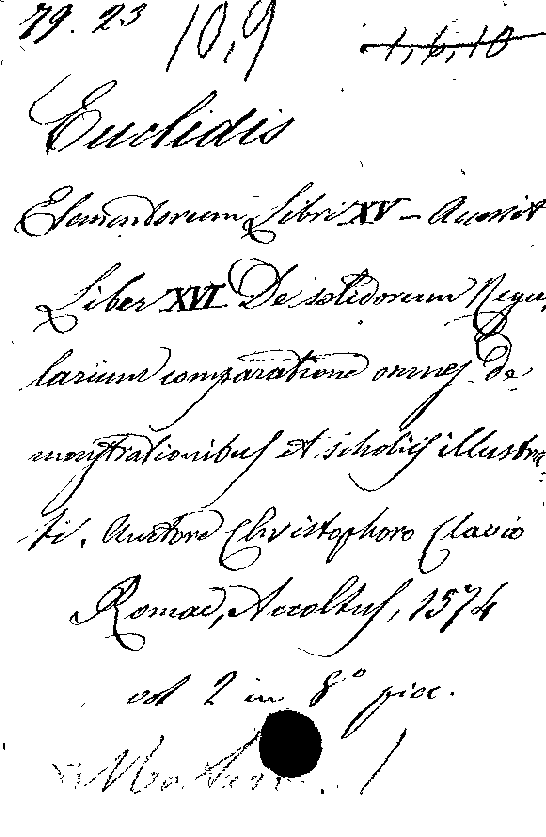 79. 23 10,9 1,6,10
Euclidis
Elementorum Libri XV - Accessit
Liber XVI De solidorum Regu,
larium comparatione omnes de,
monstrationibus et scholiis illustra,
ti. Auctore Christophoro Clavio
Romae, Accoltus, 1574
vol 2 in 8° picc.